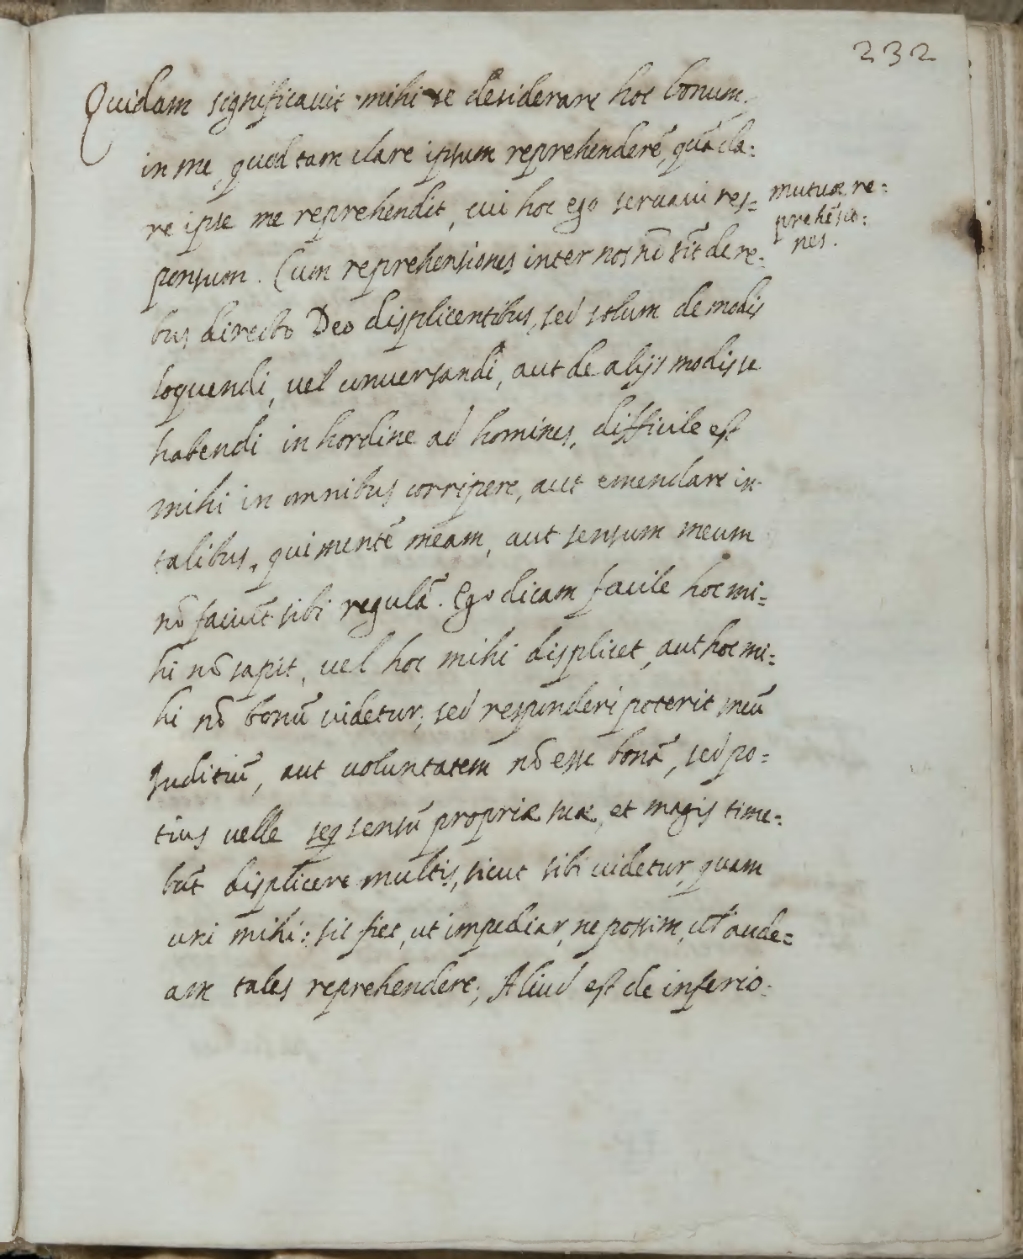 232
Quidam significauit mihi se desiderare hoc bonum
in me, quod tam clare ipsum reprehenderē, quā cla=
re ipse me reprehendit, cui hoc ego seruaui res=
ponsum. Cum reprehensiones inter nos nō sīt de re=
bus directo Deo displicentibus, sed solum de modis
loquendi, vel conuersandi, aut de alijs modis se
habendi in hordine ad homines, difficile est
mihi in omnibus corripere, aut emendare in
talibus, qui mentē meam, aut sensum meum
nō faciūt sibi regulā. Ego dicam facile hoc mi=
hi nō sapit, vel hoc mihi displicet, aut hoc mi=
hi nō bonū videtur; sed responderi poterit meū
Juditiū, aut voluntatem nō esse bonā, sed po=
tius velle seq sensū propriæ suæ, et magis time=
būt displicere multis, sicut sibi videtur, quam
uni mihi: sic fiet, ut impediar, ne possim, aude=
am tales reprehendere; Aliud est de inferio=
mutuæ re=
prehēsio=
nes.